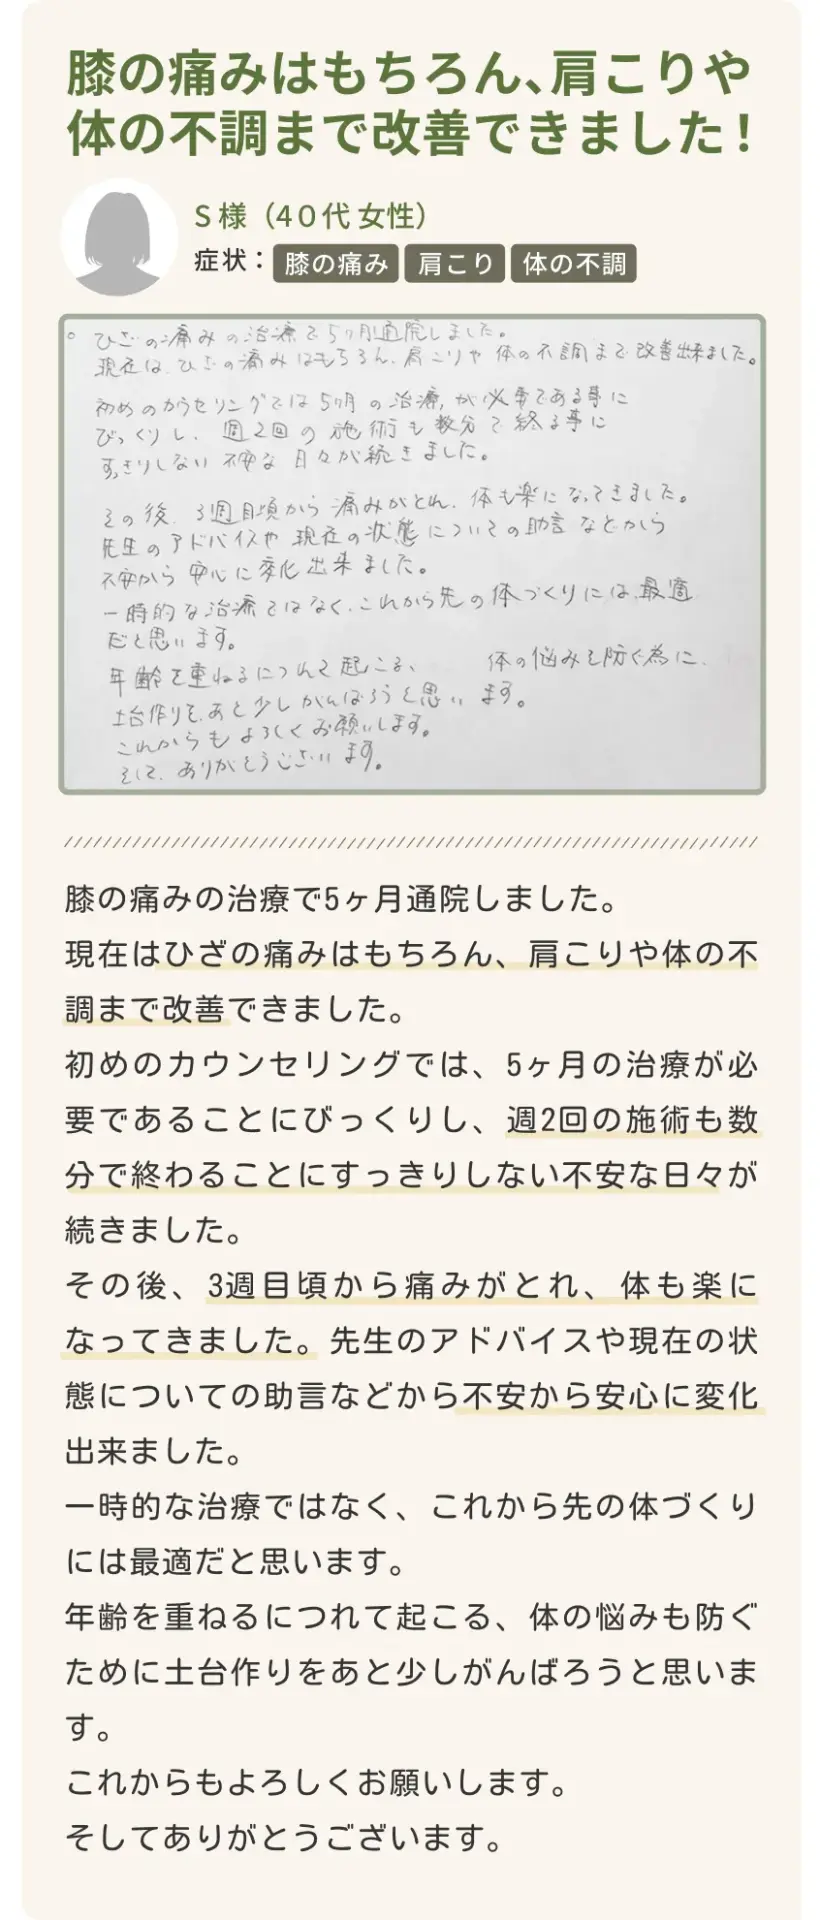 膝の痛みはもちろん、肩こりや
体の不調まで改善できました!
S様(40代 女性)
症状:膝の痛み 肩こり 体の不調
○ ひざの痛みの治療で5ヶ月通院しました。
現在は、ひざの痛みはもちろん、肩こりや 体の不調まで改善出来ました。
初めのカウセリングでは5ヶ月の治療が必要である事に
びっくりし、週2回の施術も数分で終る事に
すっきりしない 不安な日々が続きました。
その後、3週目頃から痛みがとれ、体も楽になってきました。
先生のアドバイスや現在の状態についての助言などから
不安から安心に変化出来ました。
一時的な治療ではなく、これから先の体づくりには、最適
だと思います。
年齢を重ねるにつれて起こる、 体の悩みも防ぐ為に、
土台作りを、あと少しがんばろうと思います。
これからもよろしくお願いします。
そして、ありがとうございます。
膝の痛みの治療で5ヶ月通院しました。
現在はひざの痛みはもちろん、肩こりや体の不
調まで改善できました。
初めのカウンセリングでは、5ヶ月の治療が必
要であることにびっくりし、週2回の施術も数
分で終わることにすっきりしない不安な日々が
続きました。
その後、3週目頃から痛みがとれ、体も楽に
なってきました。先生のアドバイスや現在の状
態についての助言などから不安から安心に変化
出来ました。
一時的な治療ではなく、これから先の体づくり
には最適だと思います。
年齢を重ねるにつれて起こる、体の悩みも防ぐ
ために土台作りをあと少しがんばろうと思いま
す。
これからもよろしくお願いします。
そしてありがとうございます。